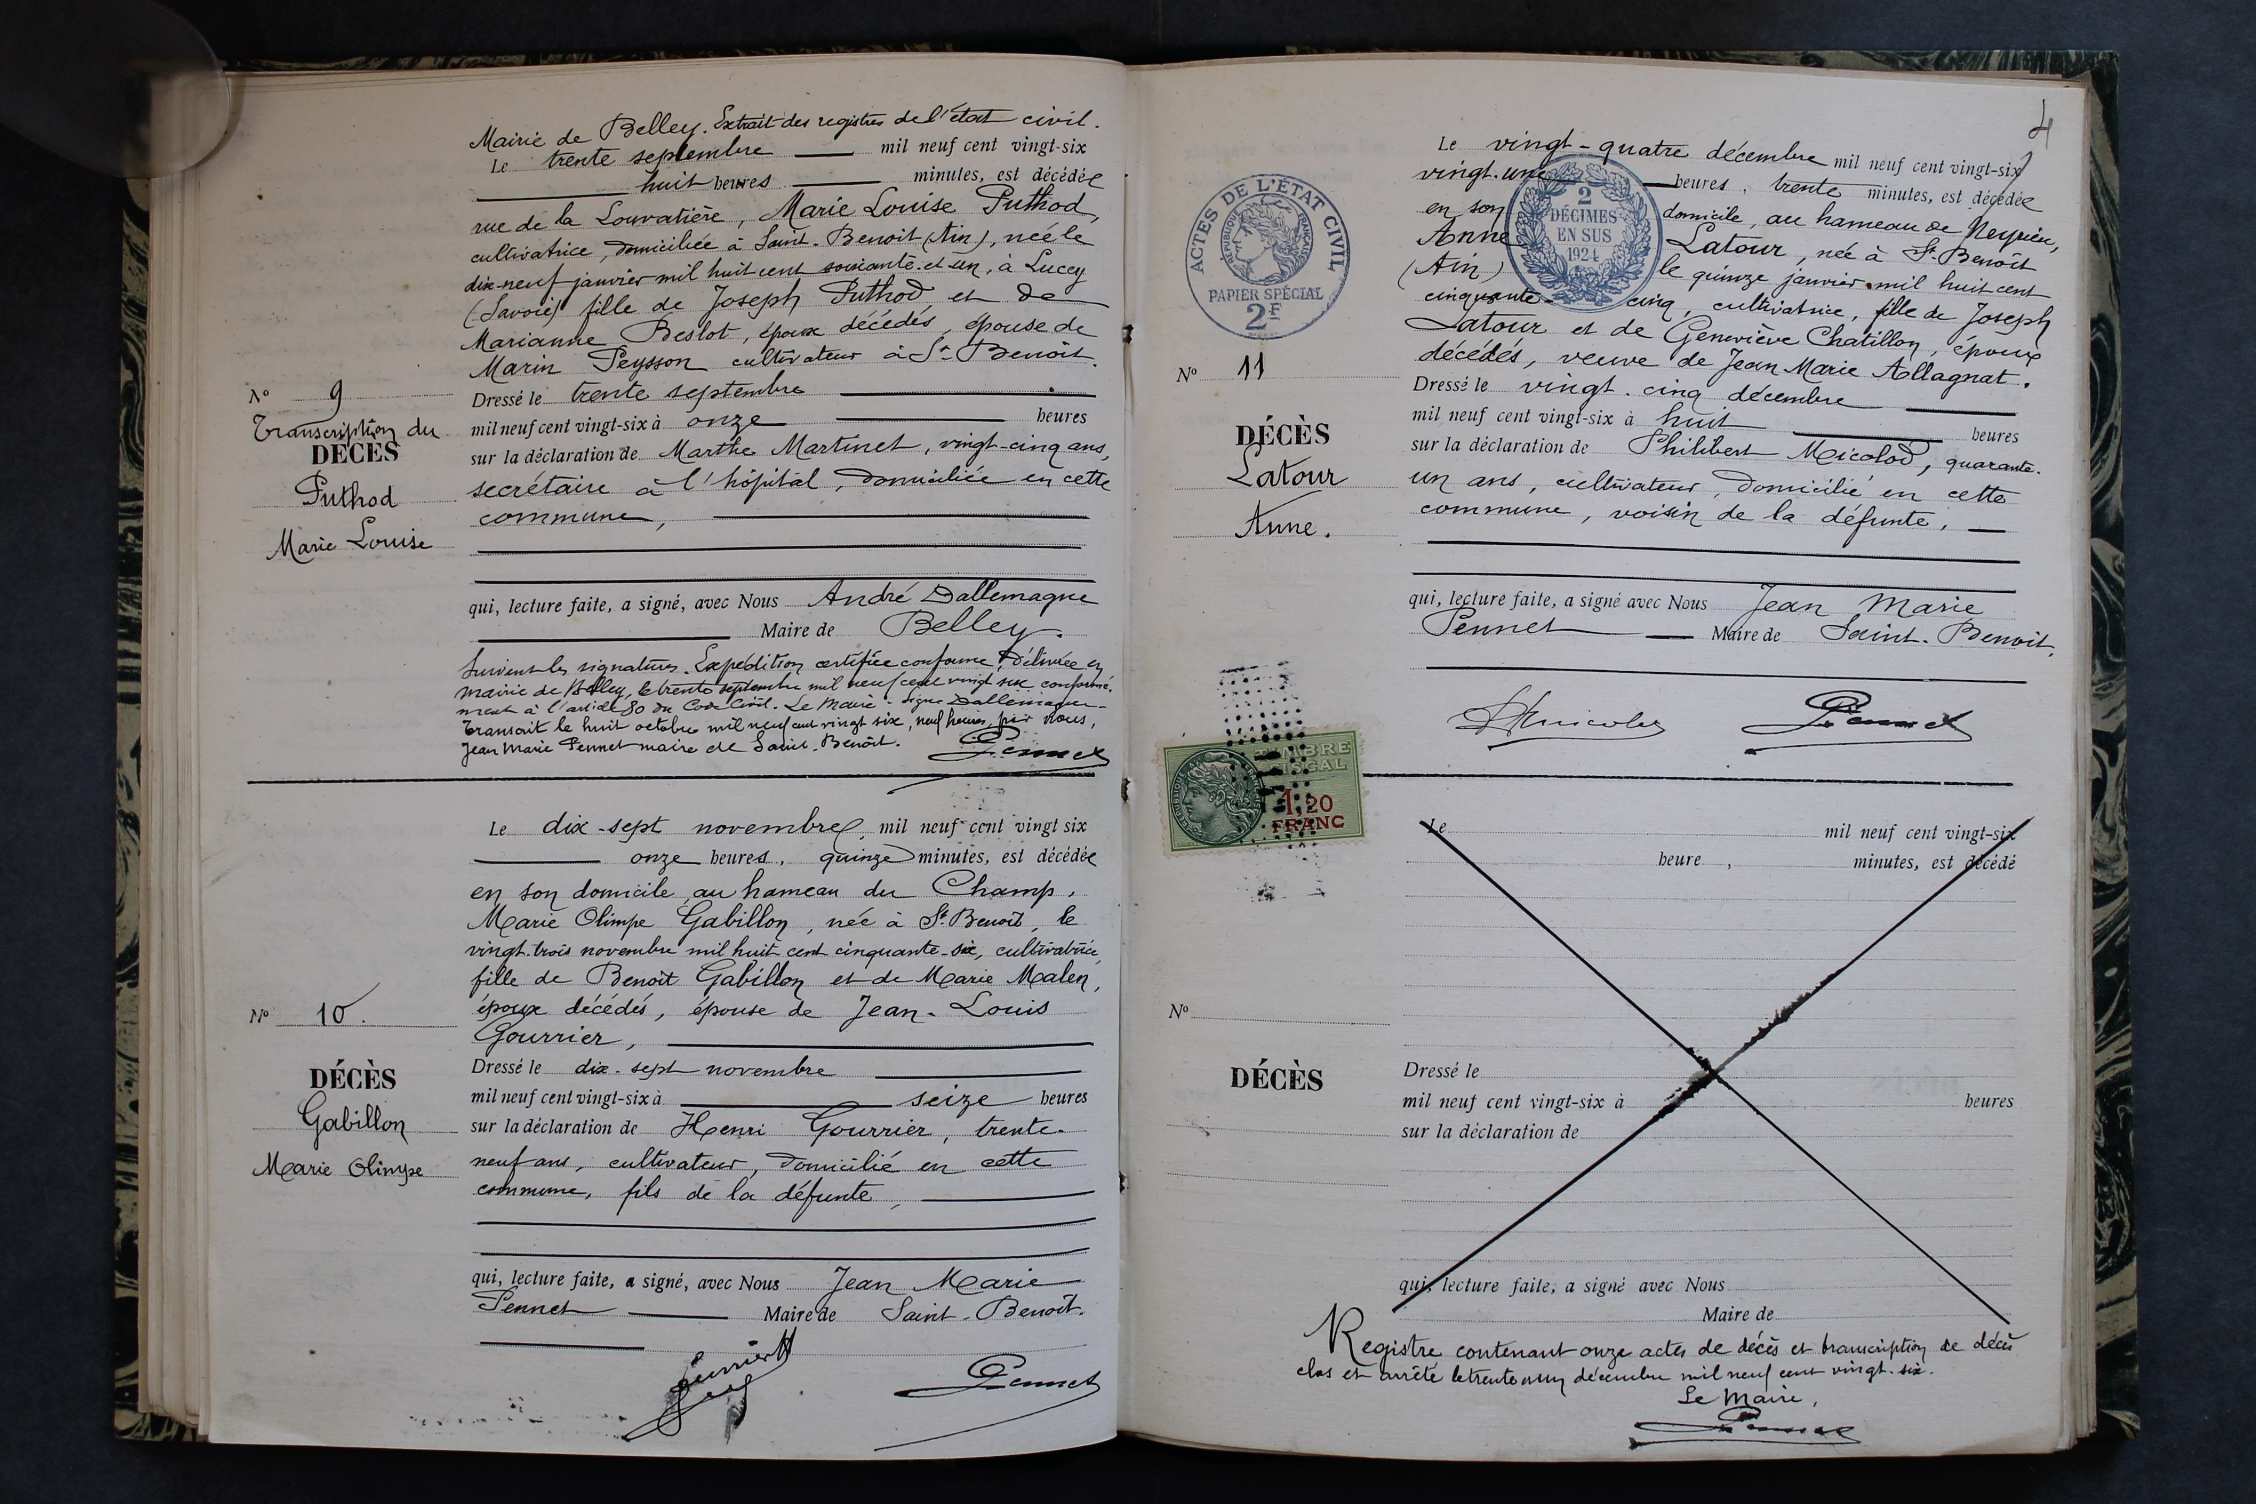 Mairie de Belley. Extrait des registres de l'état civil.
Le trente septembre mil neuf cent vingt-six
huit heures minutes, est décédée
rue de la Louvatière, Marie Louise Puthod,
cultivatrice, domiciliée à Saint-Benoit (Ain), née le
dix-neuf janvier mil huit cent soixante-et-un, à Lucey
(Savoie) fille de Joseph Puthod et de
Marianne Beslot, époux décédés, épouse de
Marin Peysson cultivateur à St Benoît.
Nº 9
Transcription du
DÉCÈS
Puthod
Marie Louise
Dressé le trente septembre
mil neuf cent vingt-six à onze heures
sur la déclaration de Marthe Martinet, vingt-cinq ans,
secrétaire à l'hôpital, domiciliée en cette
commune,
qui, lecture faite, a signé, avec Nous André Dallemagne
Maire de Belley.
Suivent les signatures. Expédition certifiée conforme, délivrée en
mairie de Belley, le trente septembre mil neuf cent vingt six conformé-
ment à l'article 80 du Code Civil. Le Maire. Signé Dallemagne
Transcrit le huit octobre mil neuf cent vingt six, neuf heures, par nous,
Jean Marie Pennet maire de Saint-Benoît. Pennet
Le dix-sept novembre mil neuf cent vingt six
onze heures, quinze minutes, est décédée
en son domicile au hameau du Champ,
Marie Olimpe Gabillon, née à St Benoît, le
vingt-trois novembre mil huit cent cinquante-six, cultivatrice,
fille de Benoît Gabillon et de Marie Malen,
époux décédés, épouse de Jean-Louis
Gourrier,
Nº 10.
DÉCÈS
Gabillon
Marie Olimpe
Dressé le dix-sept novembre
mil neuf cent vingt-six à seize heures
sur la déclaration de Henri Gourrier, trente-
neuf ans, cultivateur, domicilié en cette
commune, fils de la défunte,
qui, lecture faite, a signé, avec Nous Jean Marie
Pennet Maire de Saint-Benoît.
Pennet
4
Le vingt-quatre décembre mil neuf cent vingt-six
vingt-une heures, trente minutes, est décédée
en son domicile, au hameau de Meyrieu,
Anne Latour, née à St Benoît
(Ain) le quinze janvier mil huit cent
cinquante-cinq, cultivatrice, fille de Joseph
Latour et de Geneviève Chatillon, époux
décédés, veuve de Jean Marie Allagnat.
ACTES DE L'ÉTAT CIVIL
RÉPUBLIQUE FRANÇAISE
PAPIER SPÉCIAL
2F
2
DÉCIMES
EN SUS
1924
Nº 11
DÉCÈS
Latour
Anne.
Dressé le vingt-cinq décembre
mil neuf cent vingt-six à huit heures
sur la déclaration de Philibert Micolod, quarante-
un ans, cultivateur, domicilié en cette
commune, voisin de la défunte,
qui, lecture faite, a signé avec Nous Jean Marie
Pennet Maire de Saint-Benoit.
Pennet
TIMBRE
FISCAL
1,20
FRANC
Le mil neuf cent vingt-six
heure, minutes, est décédé
Nº
DÉCÈS
Dressé le
mil neuf cent vingt-six à heures
sur la déclaration de
qui, lecture faite, a signé avec Nous
Maire de
Registre contenant onze actes de décès et transcription de décès
clos et arrêté le trente et un décembre mil neuf cent vingt-six.
Le Maire,
Pennet